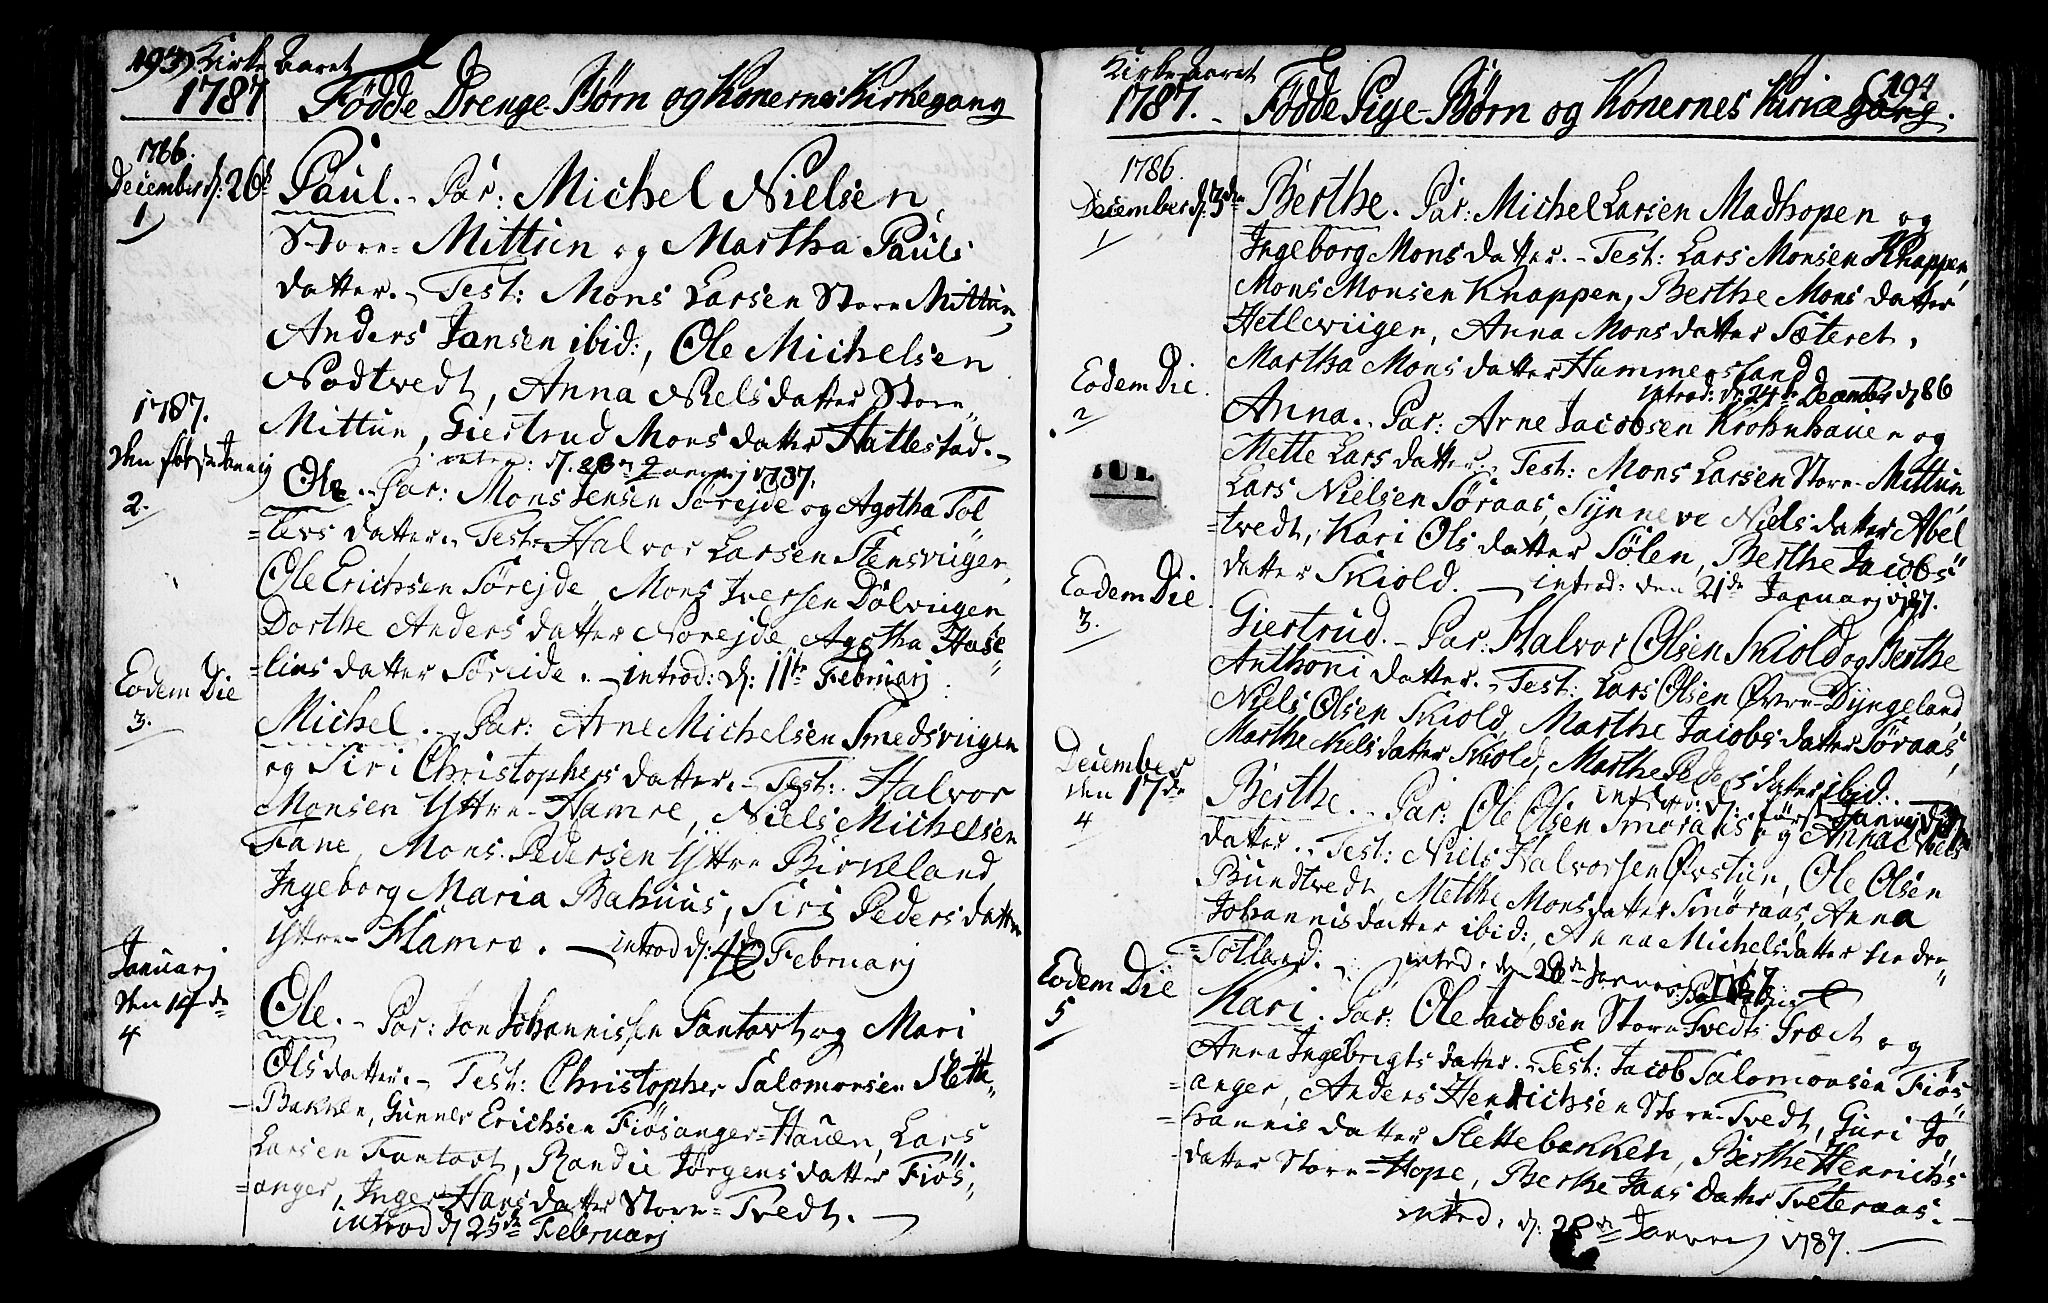 193) Kirke Aaret
1787 Fødde Drenge-Børn og Konernes Kirkegang
1786.
December d: 26de
1
Paul. - Par: Michel Nielsen
Store-Mittun og Martha Pauls
datter. - Test: Mons Larsen Store Mittun,
Anders Jansen ibid:, Ole Michelsen
Nodtvedt, Anna Niels datter Store-
Mittun, Giertrud Mons datter Hatlestad. -
introd: d. 28de Januarj 1787.
1787.
den første Januarij
2.
Ole. - Par: Mons Jensen Sørejde og Agotha Tol
=levs datter. - Test: Halvor Larsen Stensviigen,
Ole Erichsen Sørejde, Mons Iversen Dolviigen
Dorthe Anders datter Norejde, Agotha Hase
=lius datter Søreide. - introd: d: 11te Februarj.
Eodem Die
3.
Michel. - Par: Arne Michelsen Smedsviigen
og Siri Christophers datter. - Test: Halvor
Monsen Yttre-Hamre, Niels Michelsen
Fane, Mons Pedersen Yttre Birkeland,
Ingeborg Maria Bahuus, Siri Peders datter
Yttre-Hamre. - introd d: 4de Februarj
Januarj
den 14de
4
Ole. - Par: Jon Johannissen Fantoft og Mari
Ols datter. - Test: Christopher Salomonsen Slette
-Bakken, Gunner Erichsen Fiøsanger=Hauen, Lars
Larsen Fantoft, Randie Jørgens datter Fiøs,
=anger, Inger Hans datter Store=Tvedt. -
introd d 25de Februarj
Kirke-Aaret (194
1787. - Fødde Pige-Børn og Konernes Kirkegang.
1786.
December d. 3den
1
Berthe. Par: Michel Larsen Madhopen og
Ingeborg Mons datter. - Test: Lars Monsen Knappen,
Mons Monsen Knappen, Berthe Mons datter
Hetleviigen, Anna Mons datter Sæteret,
Martha Mons datter Hammersland
introd: d. 24de December 1786
Eodem Die
2
Anna. - Par: Arne Jacobsen Krohnhauen og
Mette Lars datter. - Test: Mons Larsen Store-Mittun,
Lars Nielsen Søraas, Synneve Niels datter Abel
=tvedt, Kari Ols datter Sølen, Berthe Jacobs
datter Skiold. - introd: den 21de Januarj 1787.
Eodem Die
3.
Giertrud. - Par: Halvor Olsen Skiold og Berthe
Anthoni datter. - Test: Lars Olsen Øvre-Dyngeland,
Niels Olsen Skiold, Marthe Jacobs datter Søraas,
Marthe Niels datter Skiold, Marthe Peders datter ibid:
introd: d: første Januarj 1787
December
den 17de
4
Berthe. - Par: Ole Olsen Smøraas og Anna Niels
datter. - Test: Niels Halvorsen Øvstiun, Ole Olsen
Bundtvedt, Methe Mons datter Smøraas, Anna
Johannis datter ibid:, Anna Michelsdatter Nedre
=Totland. - introd: den 28de Januarj 1787
Eodem Die
5
Kari. Par: Ole Jacobsen Store-Tvedts Træet og
Anna Ingebrigts datter. - Test: Jacob Salomonsen Fiøs
=anger, Anders Henrichsen Store-Tvedt, Guri Jo,
=hannis datter Slettebakken, Berthe Henrichs
=datter Store=Hope, Berthe Jans datter Tveteraas. -
introd. d. 28de Januarj 1787.